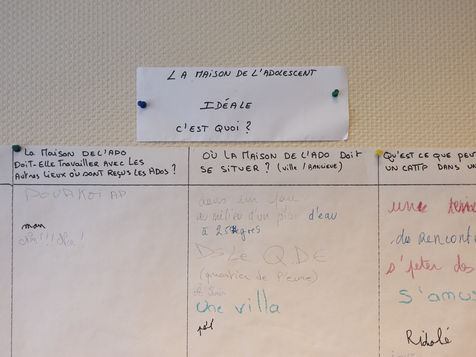 LA MAISON DE L'ADOLESCENT
IDÉALE
C'EST QUOI ?
LA MAISON DE L'ADO
DOIT-ELLE TRAVAILLER AVEC LES
AUTRES LIEUX OÙ SONT REÇUS LES ADOS ?
POURKOI
non
OÙ LA MAISON DE L'ADO DOIT
SE SITUER ? (VILLE / BANLIEUE)
dans un
au milieu d'un d'eau
à degrés
DS LE QDE
(quartier de l'eure)
Une villa
QU'EST CE QUE PEUT
UN CATTP DANS UN
une
de rencont
s'
S'amus
Ridolé